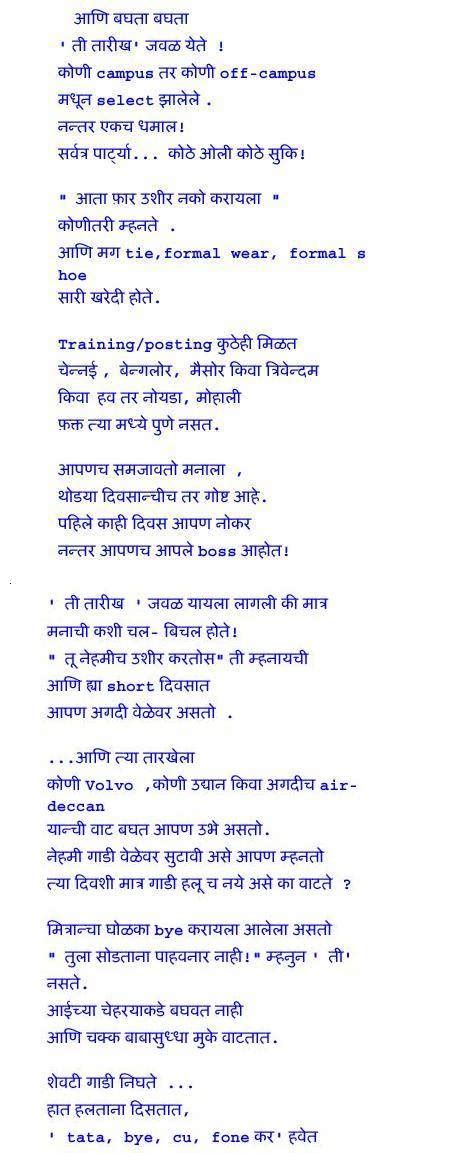 आणि बघता बघता
' ती तारीख' जवळ येते !
कोणी campus तर कोणी off-campus
मधून select झालेले .
नन्तर एकच धमाल!
सर्वत्र पार्ट्या... कोठे ओली कोठे सुकि!
" आता फ़ार उशीर नको करायला "
कोणीतरी म्हनते .
आणि मग tie,formal wear, formal s
hoe
सारी खरेदी होते.
Training/posting कुठेही मिळत
चेन्नई , बेन्गलोर, मैसोर किवा त्रिवेन्दम
किवा हव तर नोयडा, मोहाली
फ़क्त त्या मध्ये पुणे नसत.
आपणच समजावतो मनाला ,
थोडया दिवसान्चीच तर गोष्ट आहे.
पहिले काही दिवस आपण नोकर
नन्तर आपणच आपले boss आहोत!
' ती तारीख ' जवळ यायला लागली की मात्र
मनाची कशी चल- बिचल होते!
" तू नेहमीच उशीर करतोस" ती म्हनायची
आणि ह्या short दिवसात
आपण अगदी वेळेवर असतो .
...आणि त्या तारखेला
कोणी Volvo ,कोणी उद्यान किवा अगदीच air-
deccan
यान्ची वाट बघत आपण उभे असतो.
नेहमी गाडी वेळेवर सुटावी असे आपण म्हनतो
त्या दिवशी मात्र गाडी हलू च नये असे का वाटते ?
मित्रान्चा घोळका bye करायला आलेला असतो
" तुला सोडताना पाहवनार नाही!" म्हनुन ' ती'
नसते.
आईच्या चेहरयाकडे बघवत नाही
आणि चक्क बाबासुध्धा मुके वाटतात.
शेवटी गाडी निघते ...
हात हलताना दिसतात,
' tata, bye, cu, fone कर' हवेत